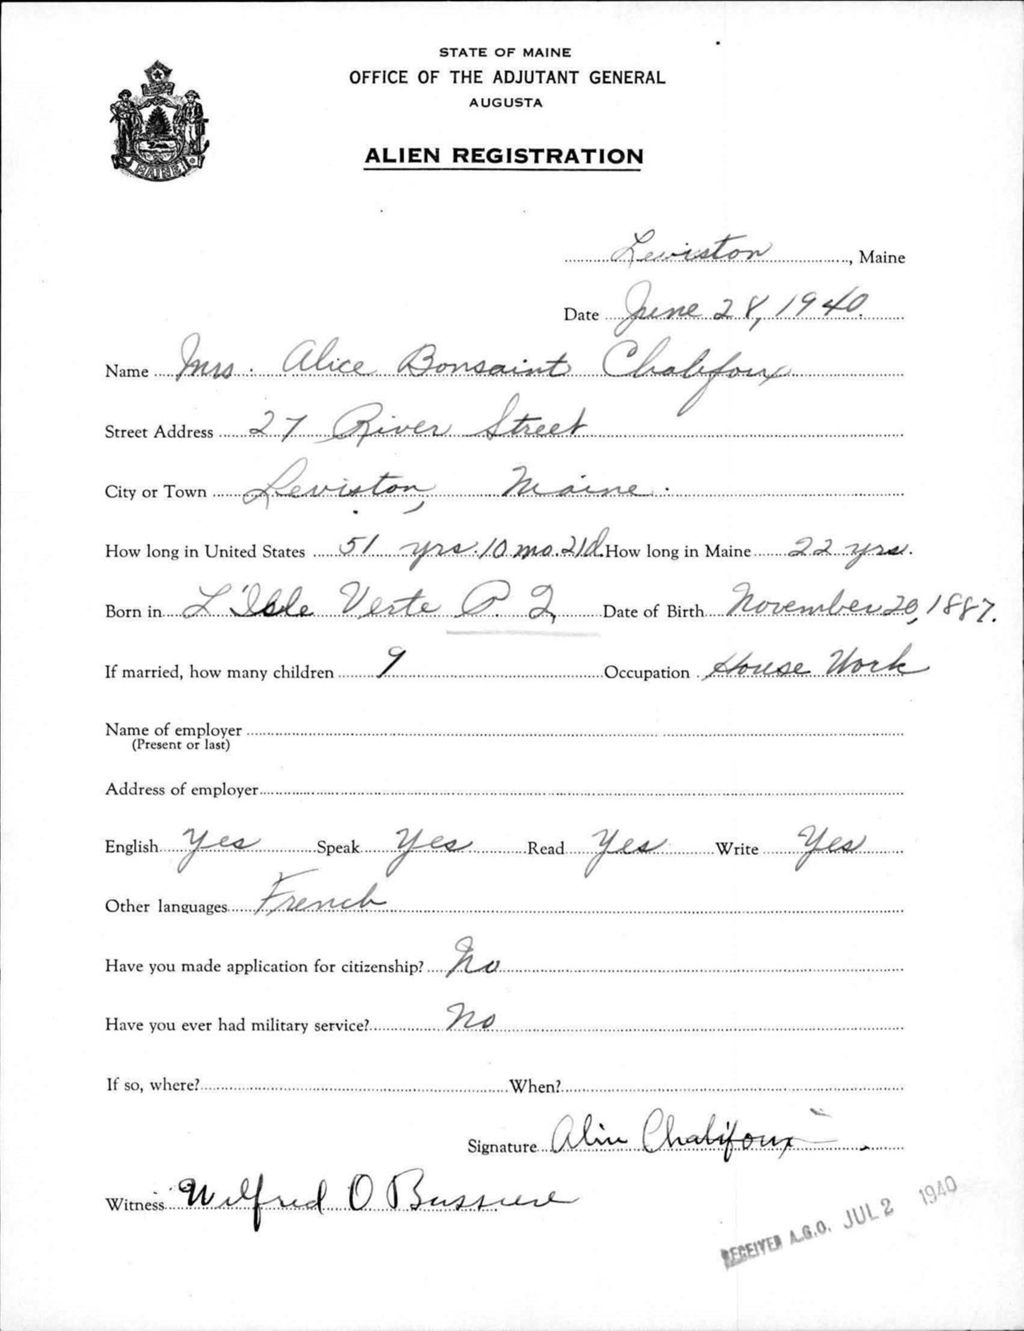 STATE OF MAINE
OFFICE OF THE ADJUTANT GENERAL
AUGUSTA
ALIEN REGISTRATION
MAINE
Lewiston, Maine
Date June 28, 1940.
Name Mrs. Alice Bonsaint Chalifoux
Street Address 27 River Street
City or Town Lewiston, Maine.
How long in United States 51 yrs. 10 mo. 21d. How long in Maine 22 yrs.
Born in L'Isle Verte P. Q. Date of Birth November 20, 1887.
If married, how many children 9 Occupation House Work
Name of employer
(Present or last)
Address of employer
English Yes Speak Yes Read Yes Write Yes
Other languages French
Have you made application for citizenship? No
Have you ever had military service? No
If so, where? When?
Signature Alice Chalifoux
Witness Wilfred O Bussiere
RECEIVED A.G.O. JUL 2 1940